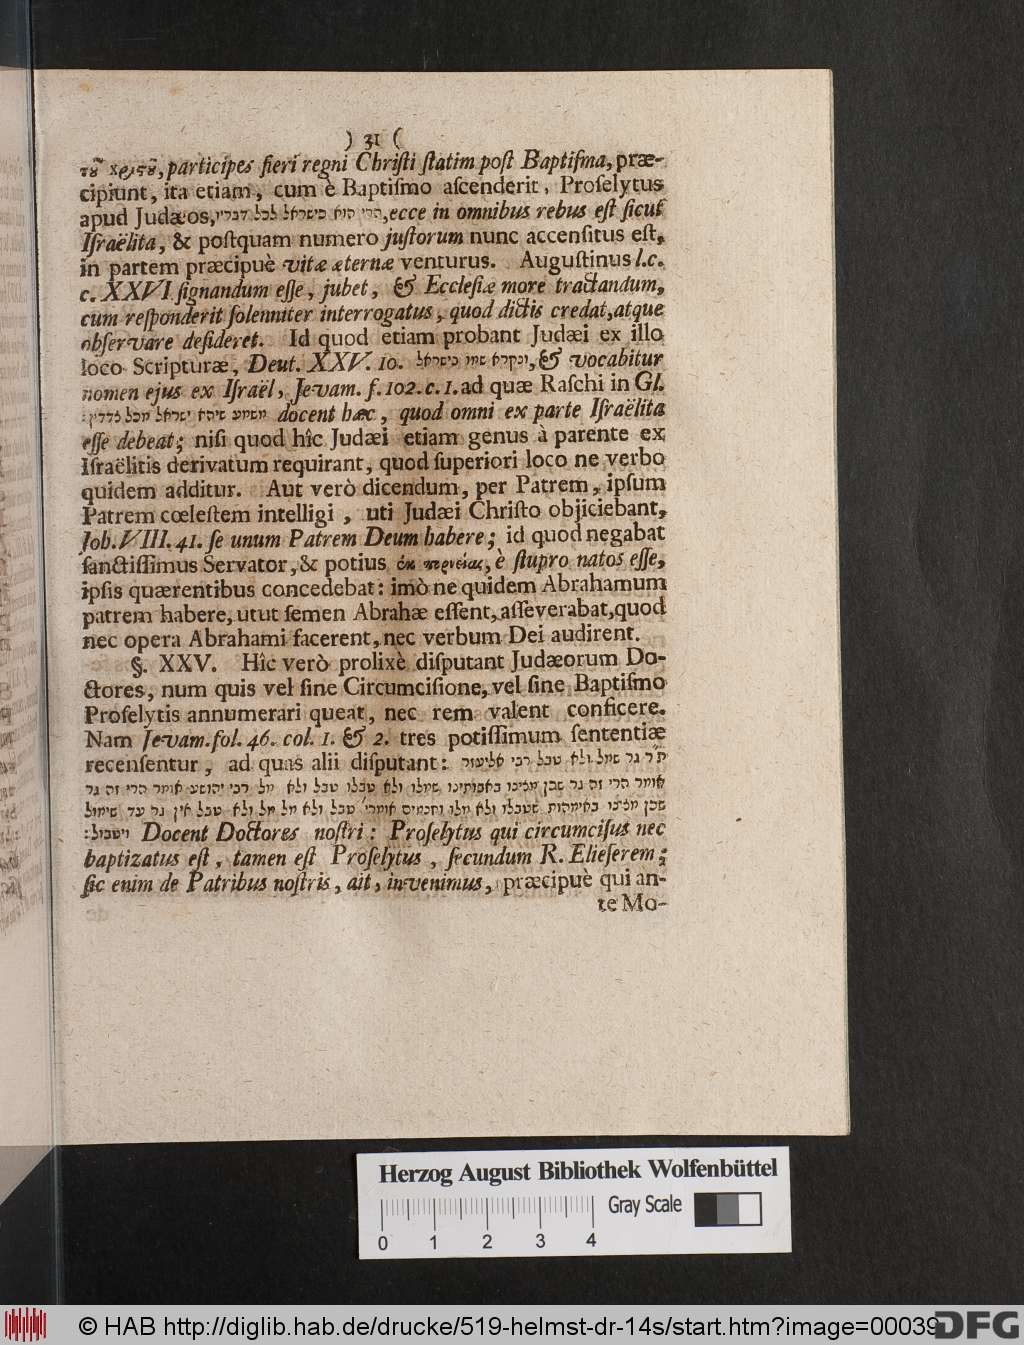 ) 31 (
τȣ͂ χριστȣ͂, participes fieri regni Chriſti ſtatim poſt Baptiſma, præ-
cipiunt, ita etiam, cum è Baptiſmo aſcenderit, Proſelytus
apud Judæos, הרי הוא כישראל לכל דבריו, ecce in omnibus rebus eſt ſicut
Iſraëlita, & poſtquam numero juſtorum nunc accenſitus eſt,
in partem præcipuè vitæ æternæ venturus. Auguſtinus l. c.
c. XXVI ſignandum eſſe, jubet, & Eccleſiæ more tractandum,
cum reſponderit ſolenniter interrogatus, quod dictis credat, atque
obſervare deſideret. Id quod etiam probant Judæi ex illo
loco Scripturæ, Deut. XXV. 10. ונקרא שמו בישראל, & vocabitur
nomen ejus ex Iſraël, Jevam. f. 102. c. 1. ad quæ Raſchi in Gl.
משמע שיהא ישראל מכל צדדין: docent hæc, quod omni ex parte Iſraëlita
eſſe debeat; niſi quod hîc Judæi etiam genus à parente ex
Iſraëlitis derivatum requirant, quod ſuperiori loco ne verbo
quidem additur. Aut verò dicendum, per Patrem, ipſum
Patrem cœleſtem intelligi, uti Judæi Chriſto objiciebant,
Joh. VIII. 41. ſe unum Patrem Deum habere; id quod negabat
ſanctiſſimus Servator, & potius ἐκ πορνείας, è ſtupro natos eſſe,
ipſis quærentibus concedebat: imò ne quidem Abrahamum
patrem habere, utut ſemen Abrahæ eſſent, aſſeverabat, quod
nec opera Abrahami facerent, nec verbum Dei audirent.
§. XXV. Hîc verò prolixè diſputant Judæorum Do-
ctores, num quis vel ſine Circumciſione, vel ſine Baptiſmo
Proſelytis annumerari queat, nec rem valent conficere.
Nam Jevam. fol. 46. col. 1. & 2. tres potiſſimum ſententiæ
recenſentur, ad quas alii diſputant: ת״ר גר שמל ולא טבל רבי אליעזר
אומר הרי זה גר שכן מצינו באבותינו שמלו ולא טבלו טבל ולא מל רבי יהושע אומר הרי זה גר
שכן מצינו באימהות שטבלו ולא מלו וחכמים אומרי׳ טבל ולא מל מל ולא טבל אין גר עד שימול
ויטבול: Docent Doctores noſtri: Proſelytus qui circumciſus nec
baptizatus eſt, tamen eſt Proſelytus, ſecundum R. Elieſerem;
ſic enim de Patribus noſtris, ait, invenimus, præcipuè qui an-
te Mo-
Herzog August Bibliothek Wolfenbüttel
Gray Scale
0 1 2 3 4
© HAB http://diglib.hab.de/drucke/519-helmst-dr-14s/start.htm?image=00039
DFG